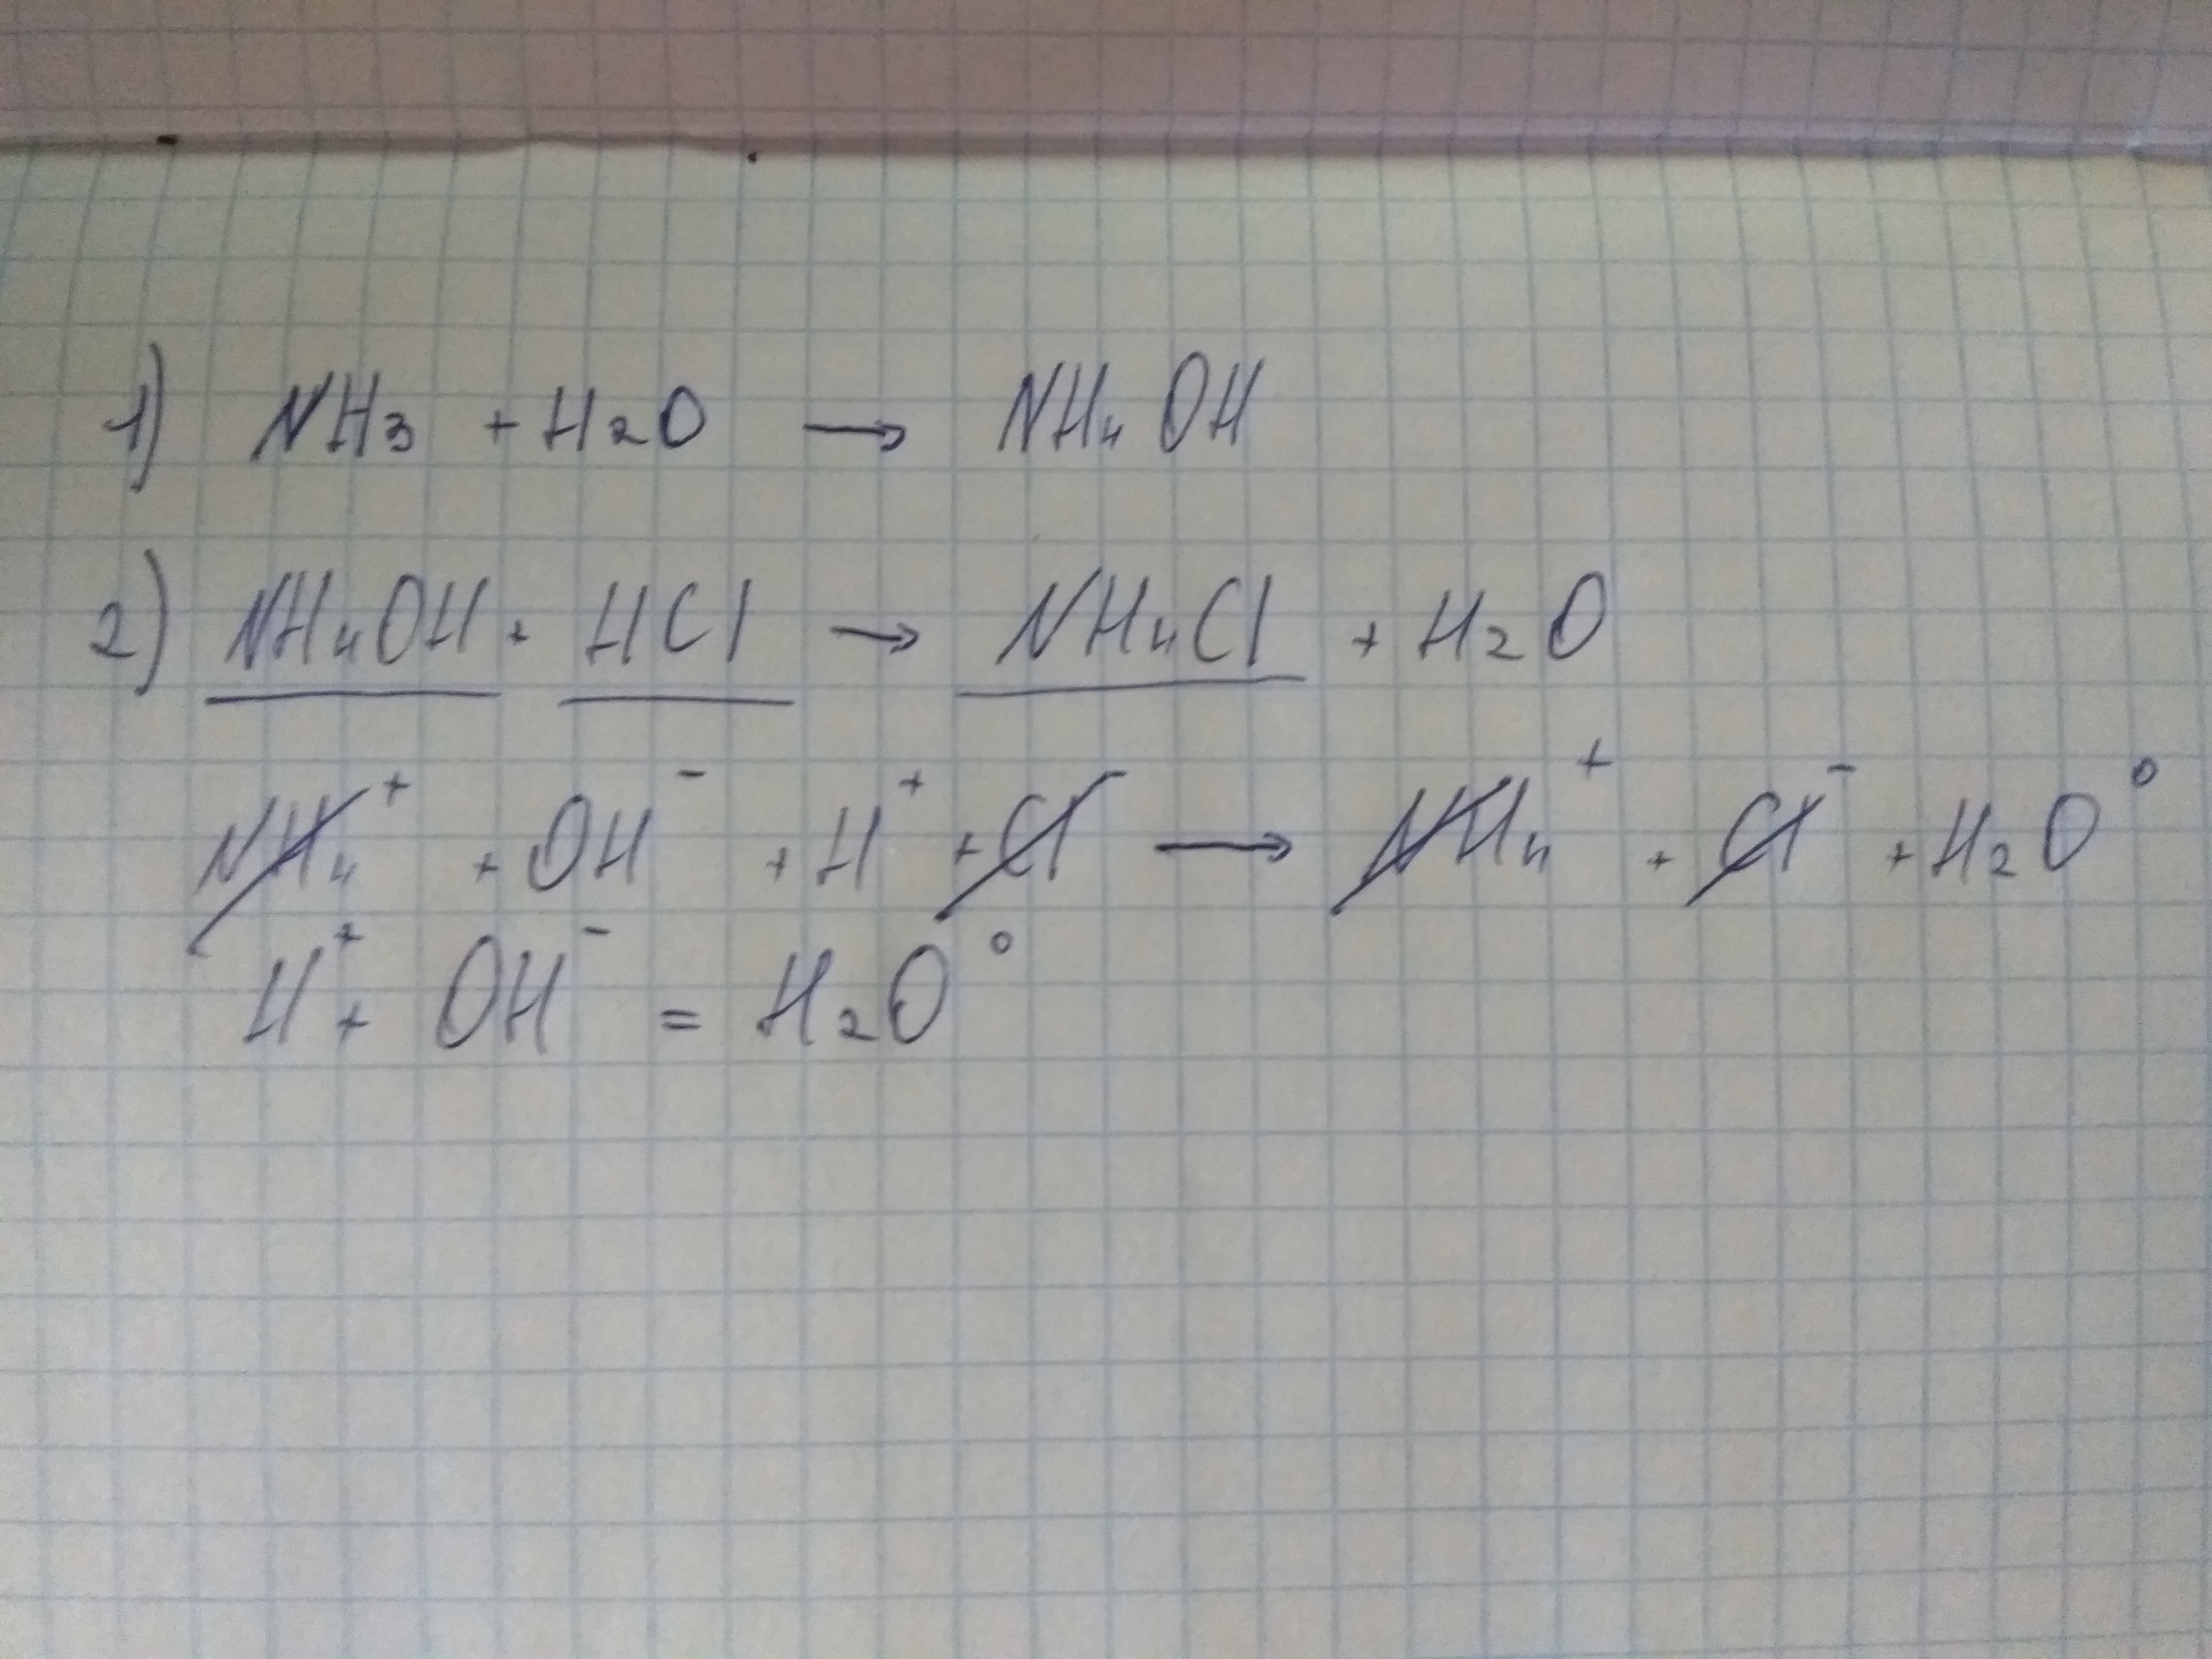 1) NH₃ + H₂O → NH₄OH
2) NH₄OH + HCl → NH₄Cl + H₂O
NH₄⁺ + OH⁻ + H⁺ + Cl⁻ → NH₄⁺ + Cl⁻ + H₂O⁰
H⁺ + OH⁻ = H₂O⁰